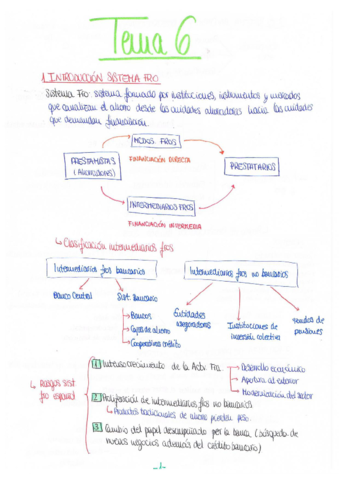 Tema 6
1. INTRODUCCIÓN SISTEMA FRO.
Sistema Fro: sistema formado por instituciones, instrumentos y mercados
que canalizan el ahorro desde las unidades ahorradoras hacia las unidades
que demandan financiación.
MCDOS. FROS
PRESTAMISTAS
(AHORRADORES)
FINANCIACIÓN DIRECTA
PRESTATARIOS
INTERMEDIARIOS FROS
FINANCIACIÓN INTERMEDIA
↳ Clasificación intermediarios fros
Intermediarios fros bancarios
Intermediarios fros no bancarios
Banco Central
Sist. Bancario
→ Bancos
→ Cajas de ahorro
→ Cooperativas crédito
Entidades
aseguradoras
Instituciones de
inversión colectiva
Fondos de
pensiones
↳ Rasgos sist
fro español
1 Intenso crecimiento de la Actv. Fra.
→ Desarrollo económico
→ Apertura al exterior
→ Modernización del sector
2 Proliferación de intermediarios fros no bancarios
↳ Productos tradicionales de ahorro pierden peso
3 Cambio del papel desempeñado por la banca (búsqueda de
nuevos negocios además del crédito bancario)
-1-